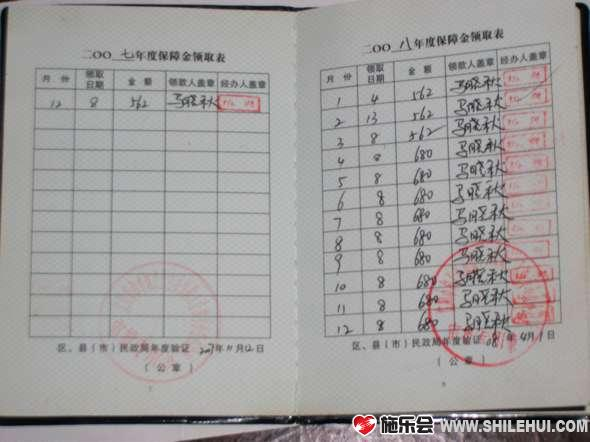 二〇〇七年度保障金领取表
月份 领取日期 金额 领款人盖章 经办人盖章
12 8 562 马晓秋
区、县（市）民政局年度验证 2007年11月12日
（公章）
二〇〇八年度保障金领取表
月份 领取日期 金额 领款人盖章 经办人盖章
1 4 562 马晓秋
2 13 562 马晓秋
3 8 562 马晓秋
4 8 680 马晓秋
5 8 680 马晓秋
6 8 680 马晓秋
7 8 680 马晓秋
8 8 680 马晓秋
9 8 680 马晓秋
10 8 680 马晓秋
11 8 680 马晓秋
12 8 680 马晓秋
区、县（市）民政局年度验证 08年4月1日
（公章）
施乐会
WWW.SHILEHUI.COM